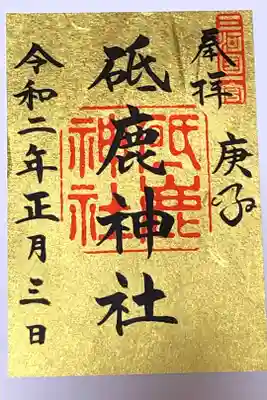 三河國一宮
奉拝
庚子
砥鹿神社
砥鹿神社
令和二年正月三日